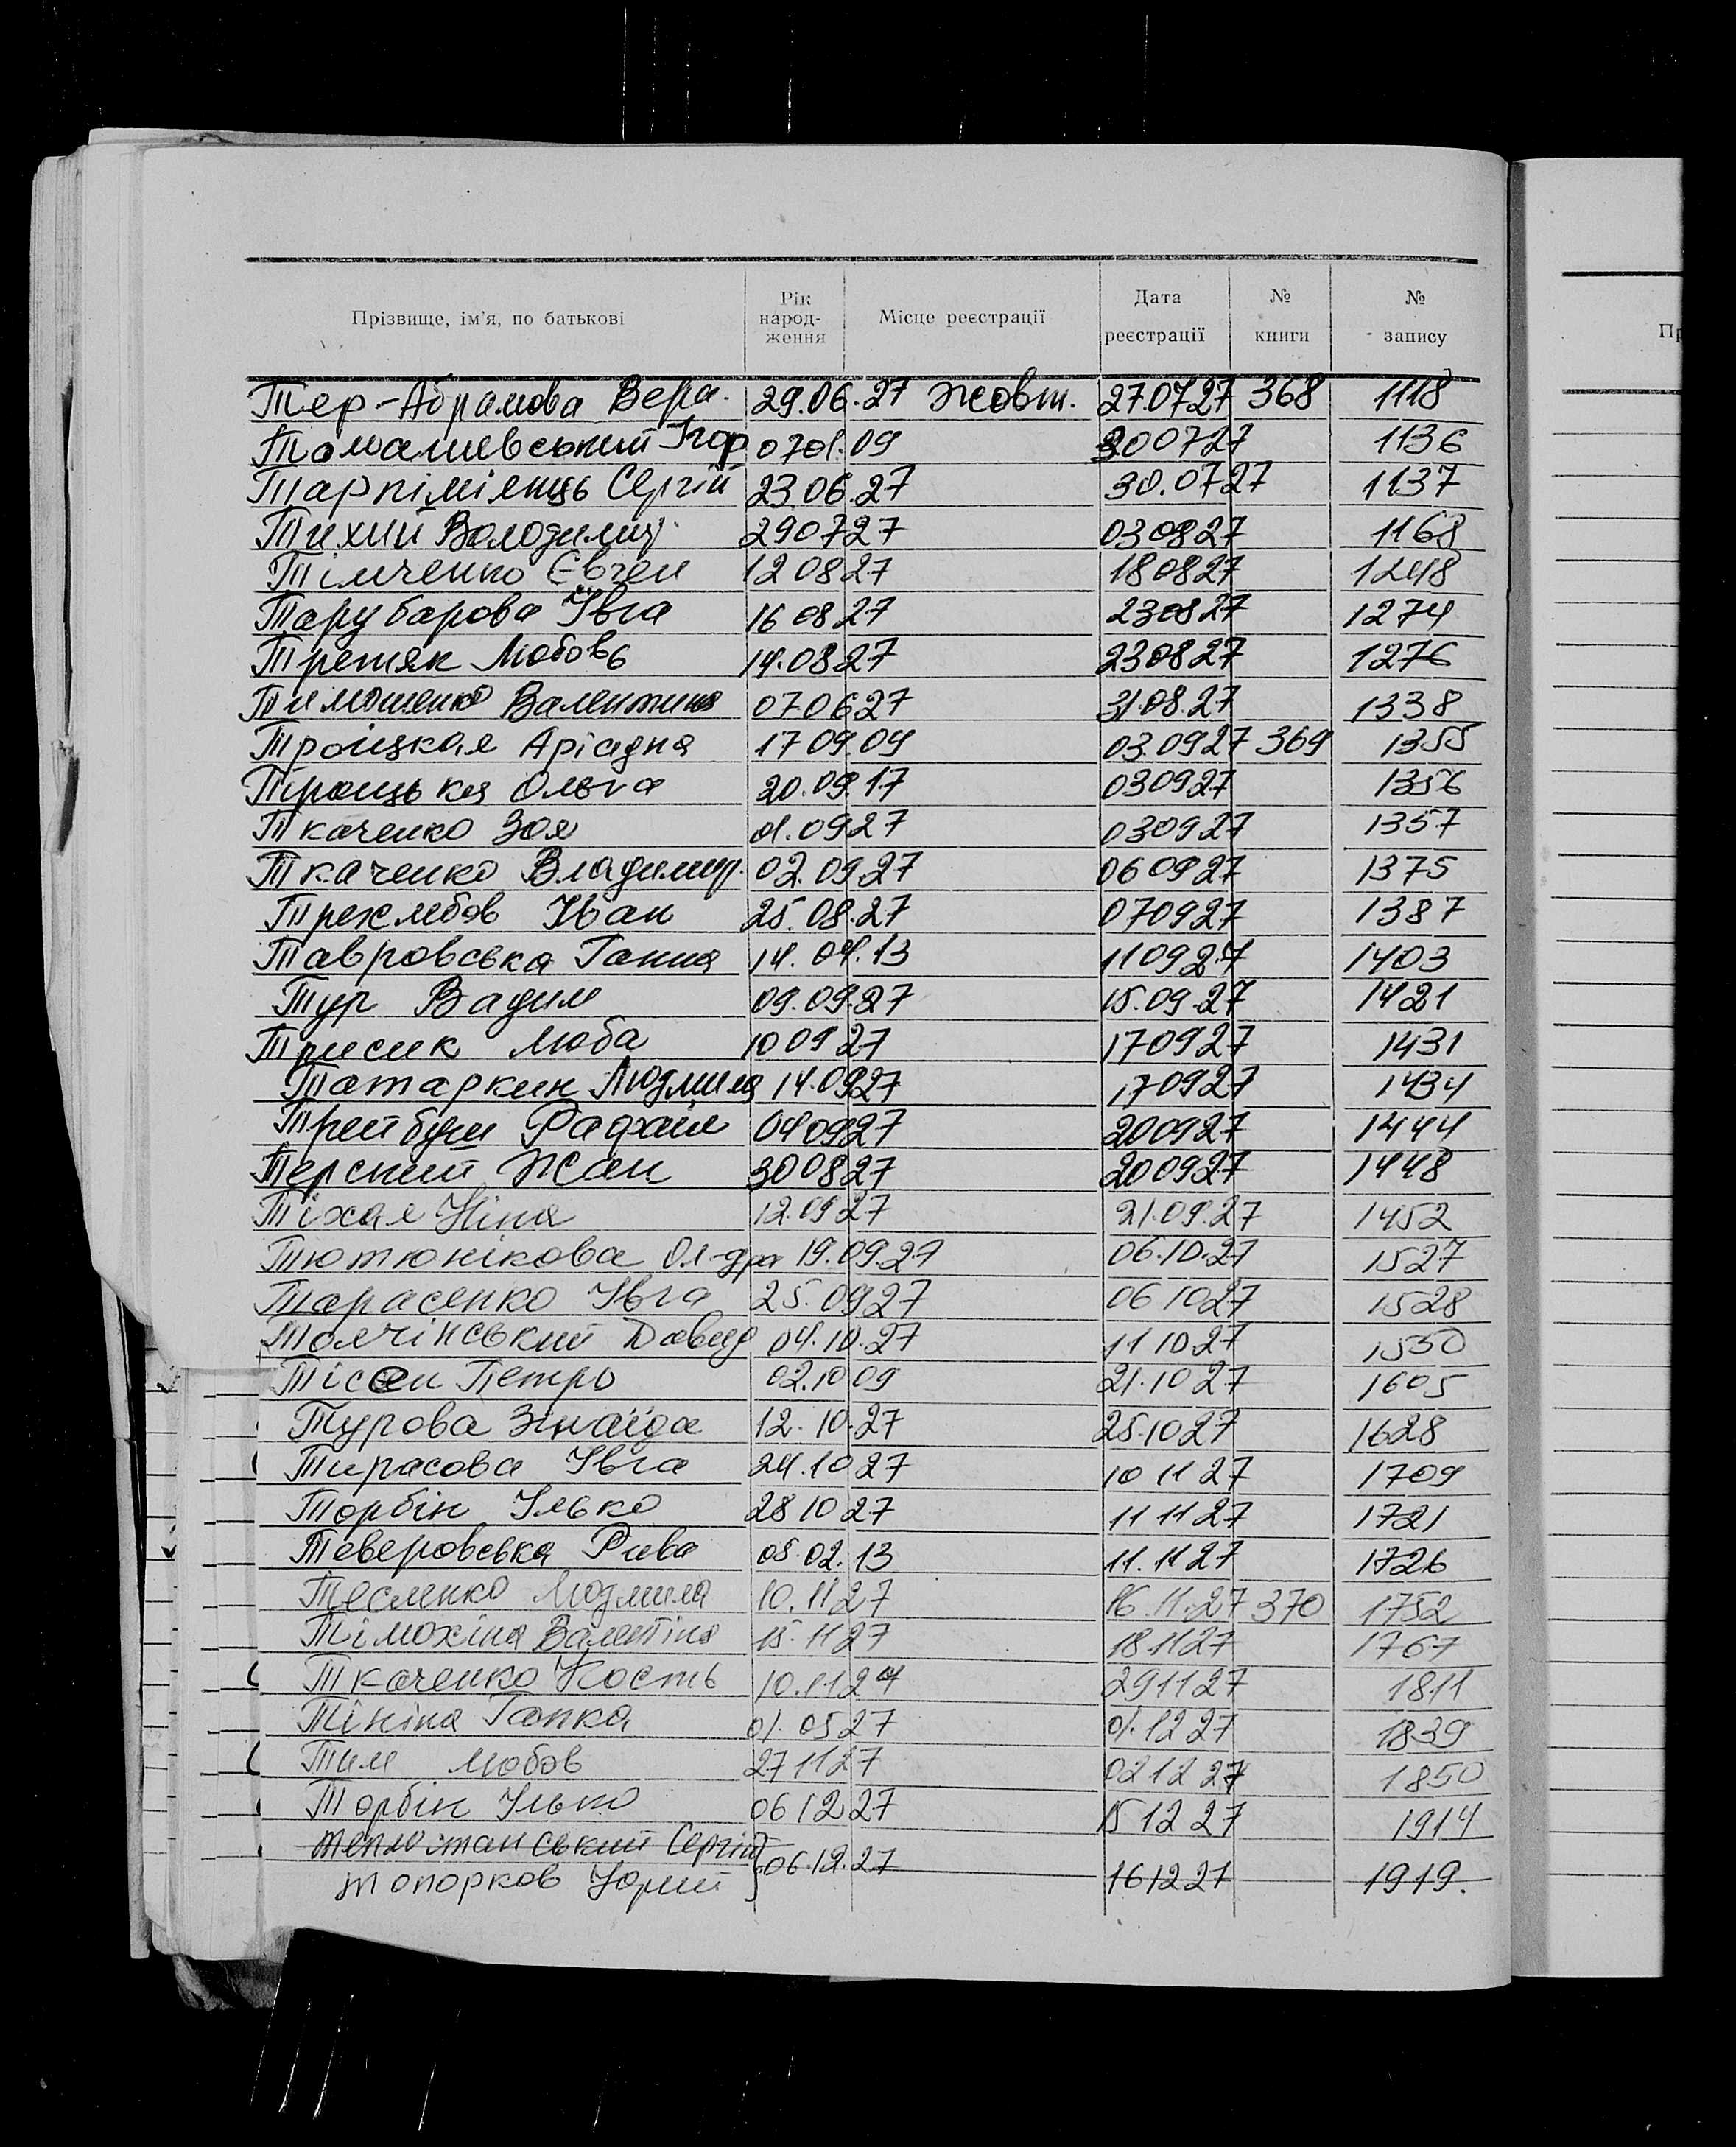 Прізвище, ім'я, по батькові Рік народ-ження Місце реєстрації Дата реєстрації № книги № запису
Тер-Абрамова Вера. 29.06.27 Жовт. 27.07.27 368 1118
Томашевський Ігор 0701.09 300727 1136
Тарпіміянць Сергій 23.06.27 30.0727 1137
Тихий Володимир 290727 030827 1168
Тімченко Євген 120827 180827 1248
Тарубарова Івга 160827 230827 1274
Третяк Любовь 14.0827 230827 1276
Тимошенко Валентина 070627 31.08.27 1338
Троицкая Аріадна 1709.09 03.0927 369 1355
Троицька Ольга 20.09.17 030927 1356
Ткаченко Зоя 01.0927 030927 1357
Ткаченко Владимир. 02.0927 060927 1375
Трехлебов Іван 25.08.27 070927 1387
Тавровська Ганна 14.04.13 110927 1403
Тур Вадим 09.09.27 15.09.27 1421
Трисик Люба 100927 170927 1431
Татаркин Людмила 14.0927 170927 1434
Трейбуш Рафаїл 040927 200927 1444
Терский Жан 300827 200927 1448
Тіхая Ніна 12.0927 21.09.27 1452
Тютюнікова Ол-дра 19.09.27 06.10.27 1527
Тарасенко Івга 25.0927 061027 1528
Толчінський Давид 04.10.27 111027 1550
Тісен Петро 02.1009 21.1027 1605
Турова Зінаїда 12.10.27 25.1027 1628
Тирасова Івга 24.1027 101127 1709
Торбін Ілько 281027 111127 1721
Теверовська Рива 05.02.13 11.1127 1726
Тесленко Людмила 10.1127 16.11.27 370 1752
Тімохіна Валентіна 15.1127 181127 1767
Ткаченко Кость 10.1127 291127 1811
Тініна Гапка 01.0527 01.1227 1839
Тим Любов 271127 021227 1850
Торбін Ілько 061227 151227 1914
Теплостанський Сергій
Топорков Юрий } 06.12.27 161227 1919.
Пр